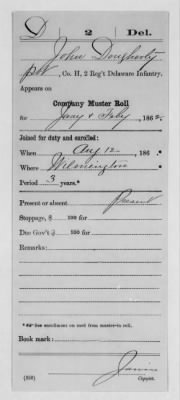 D 2 Del.
John Dougherty
pvt, Co. H, 2 Reg't Delaware Infantry.
Appears on
Company Muster Roll
for Jany & Feby, 1862.
Joined for duty and enrolled:
When Aug 12, 186 .
Where Wilmington
Period 3 years.*
Present or absent Present
Stoppage, $ 100 for
Due Gov't $ 100 for
Remarks:
*See enrollment on card from muster-in roll.
Book mark:
(358) Copyist.